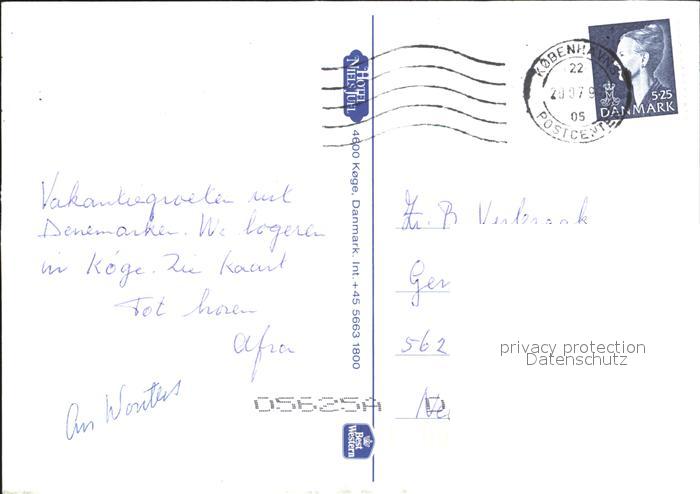 Vakantiegroeten uit
Denemarken. We logeren
in Köge. Zie kaart
Tot horen
Afra
An Wouters
HOTEL
NIELS JUEL
4600 Køge, Danmark. Int. +45 5663 1800
Best
Western
056254
KØBENHAVNS
22
05
POSTCENTER
5.25
DANMARK
B
Ger
562
Ne
privacy protection
Datenschutz